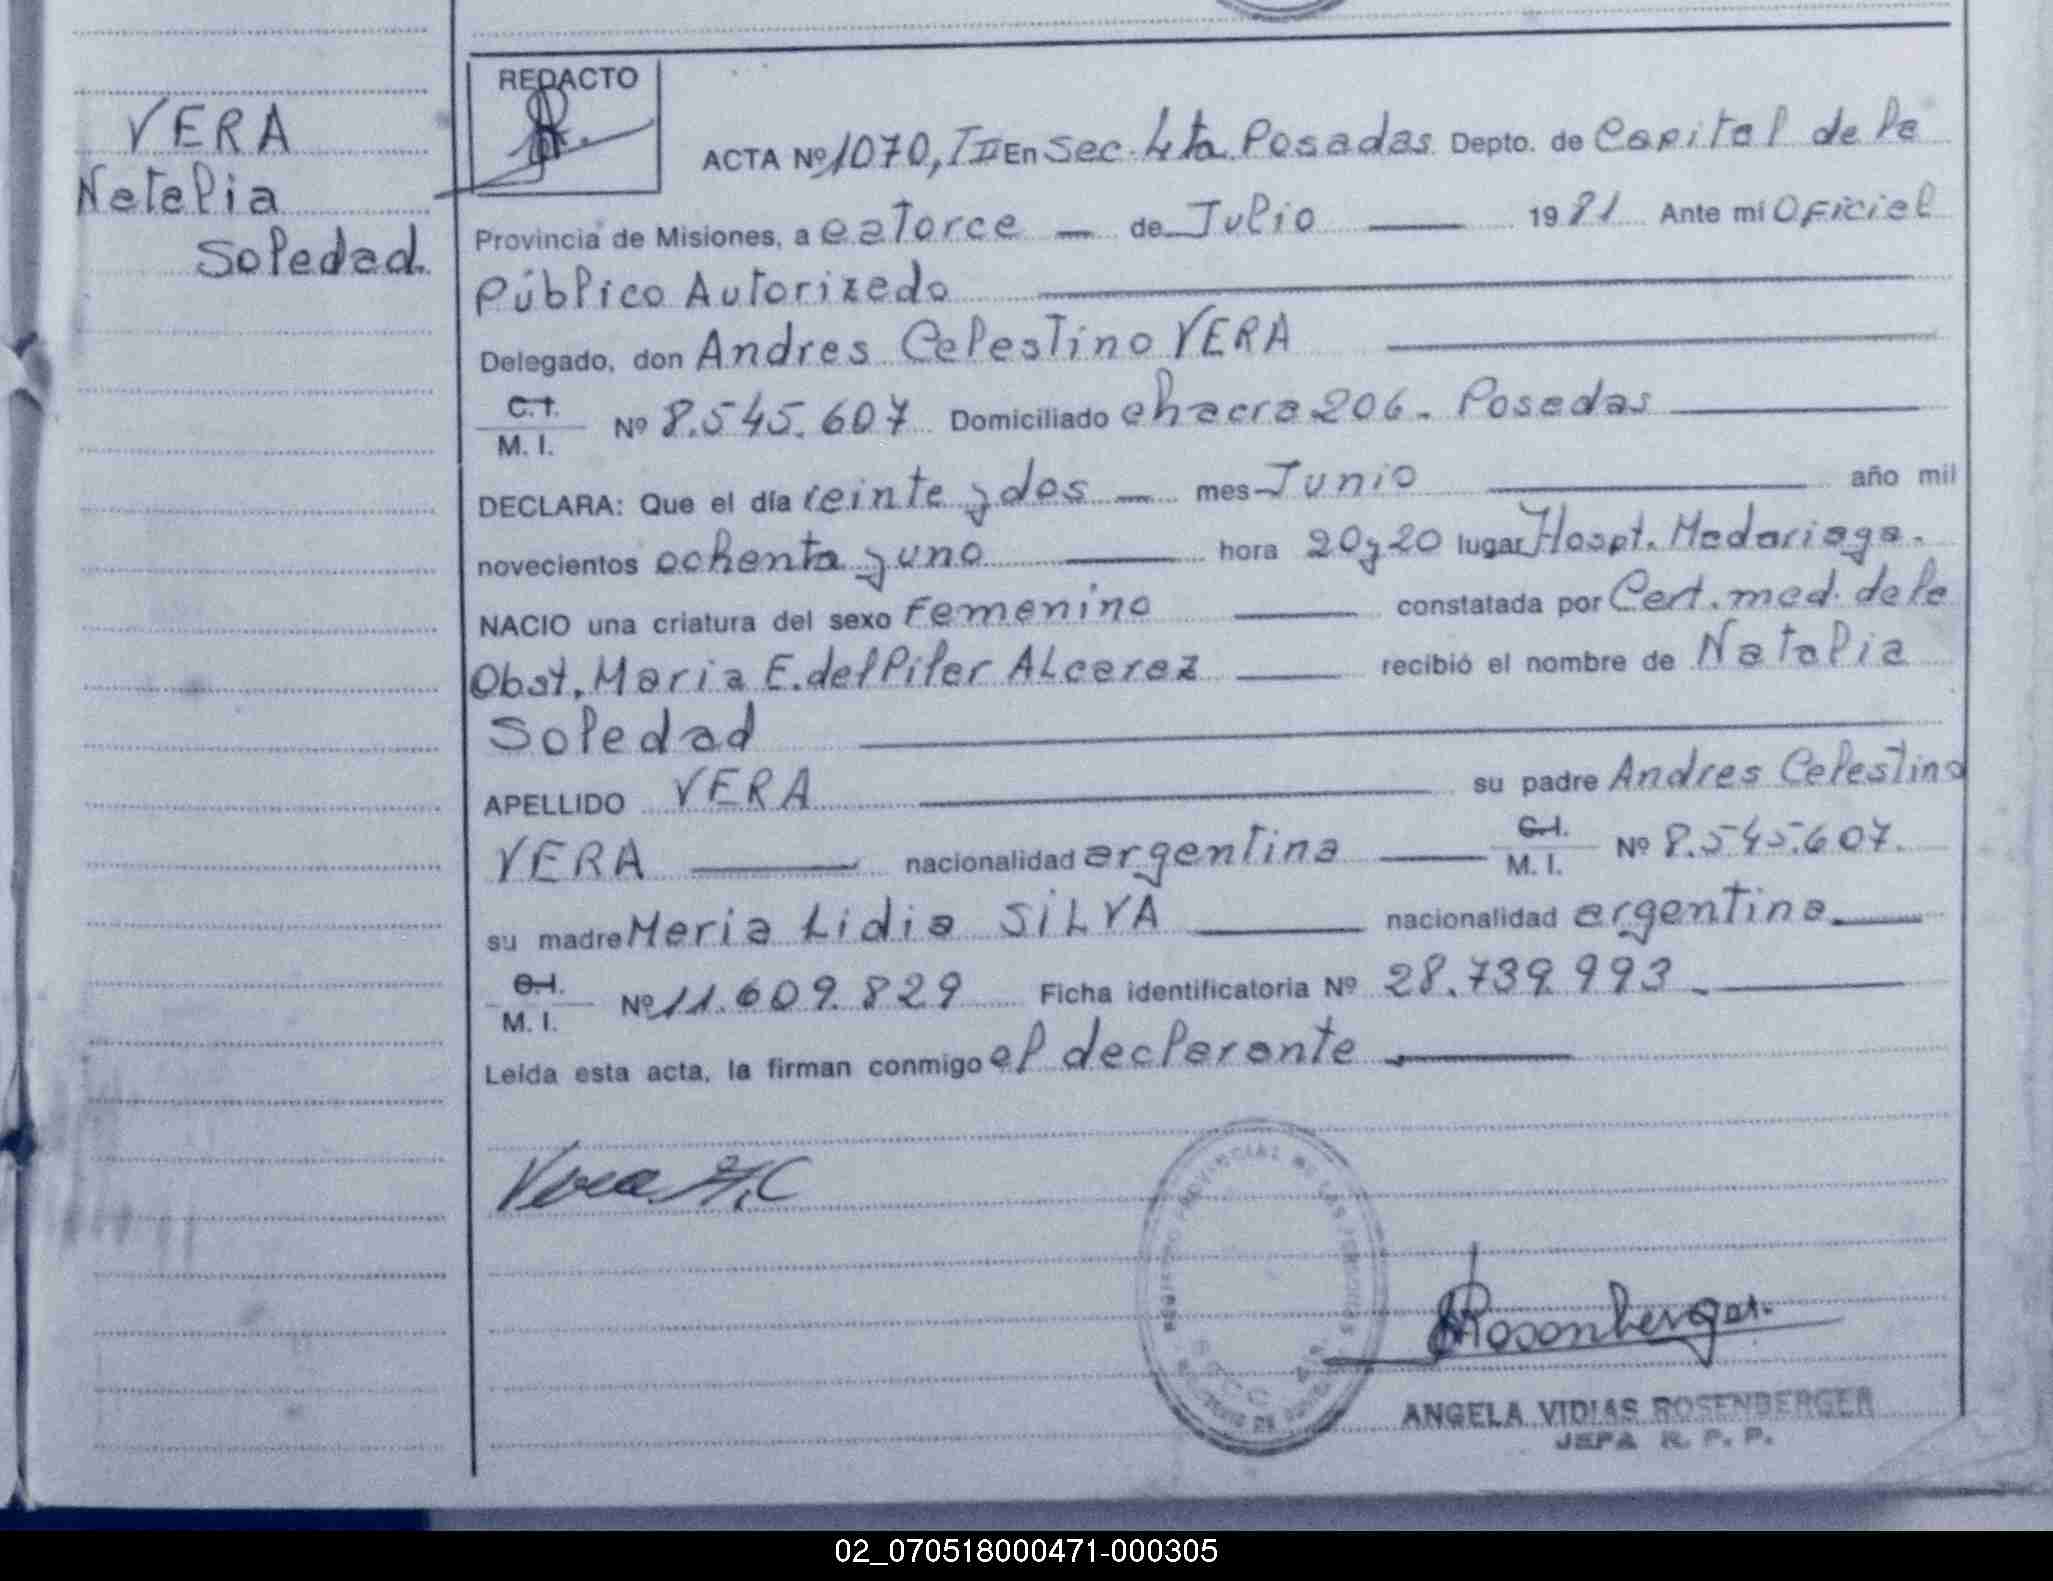 VERA
Natalia
Soledad.
REDACTO
ACTA Nº 1070, III En Sec. 4ta Posadas Depto. de Capital de la
Provincia de Misiones, a catorce — de Julio — 1981 Ante mí Oficial
Público Autorizado
Delegado, don Andres Celestino VERA
C.I.
M. I. Nº 8.545.607 Domiciliado chacra 206. Posadas
DECLARA: Que el día veinte y dos — mes Junio — año mil
novecientos ochenta y uno — hora 20 y 20 lugar Hospt. Madariaga.
NACIO una criatura del sexo Femenino — constatada por Cert. med. de la
Obst. Maria E. del Pilar ALcaraz — recibió el nombre de Natalia
Soledad
APELLIDO VERA — su padre Andres Celestino
VERA — nacionalidad argentina — C.I.
M. I. Nº 8.545.607.
su madre Maria Lidia SILVA — nacionalidad argentina.
C.I.
M. I. Nº 11.609.829 Ficha identificatoria Nº 28.739.993.
Leída esta acta, la firman conmigo el declarante
Vera A.C
REGISTRO PROVINCIAL DE LAS PERSONAS
Rosenberger.
ANGELA VIDIAS ROSENBERGER
JEFA R. P. P.
02_070518000471-000305